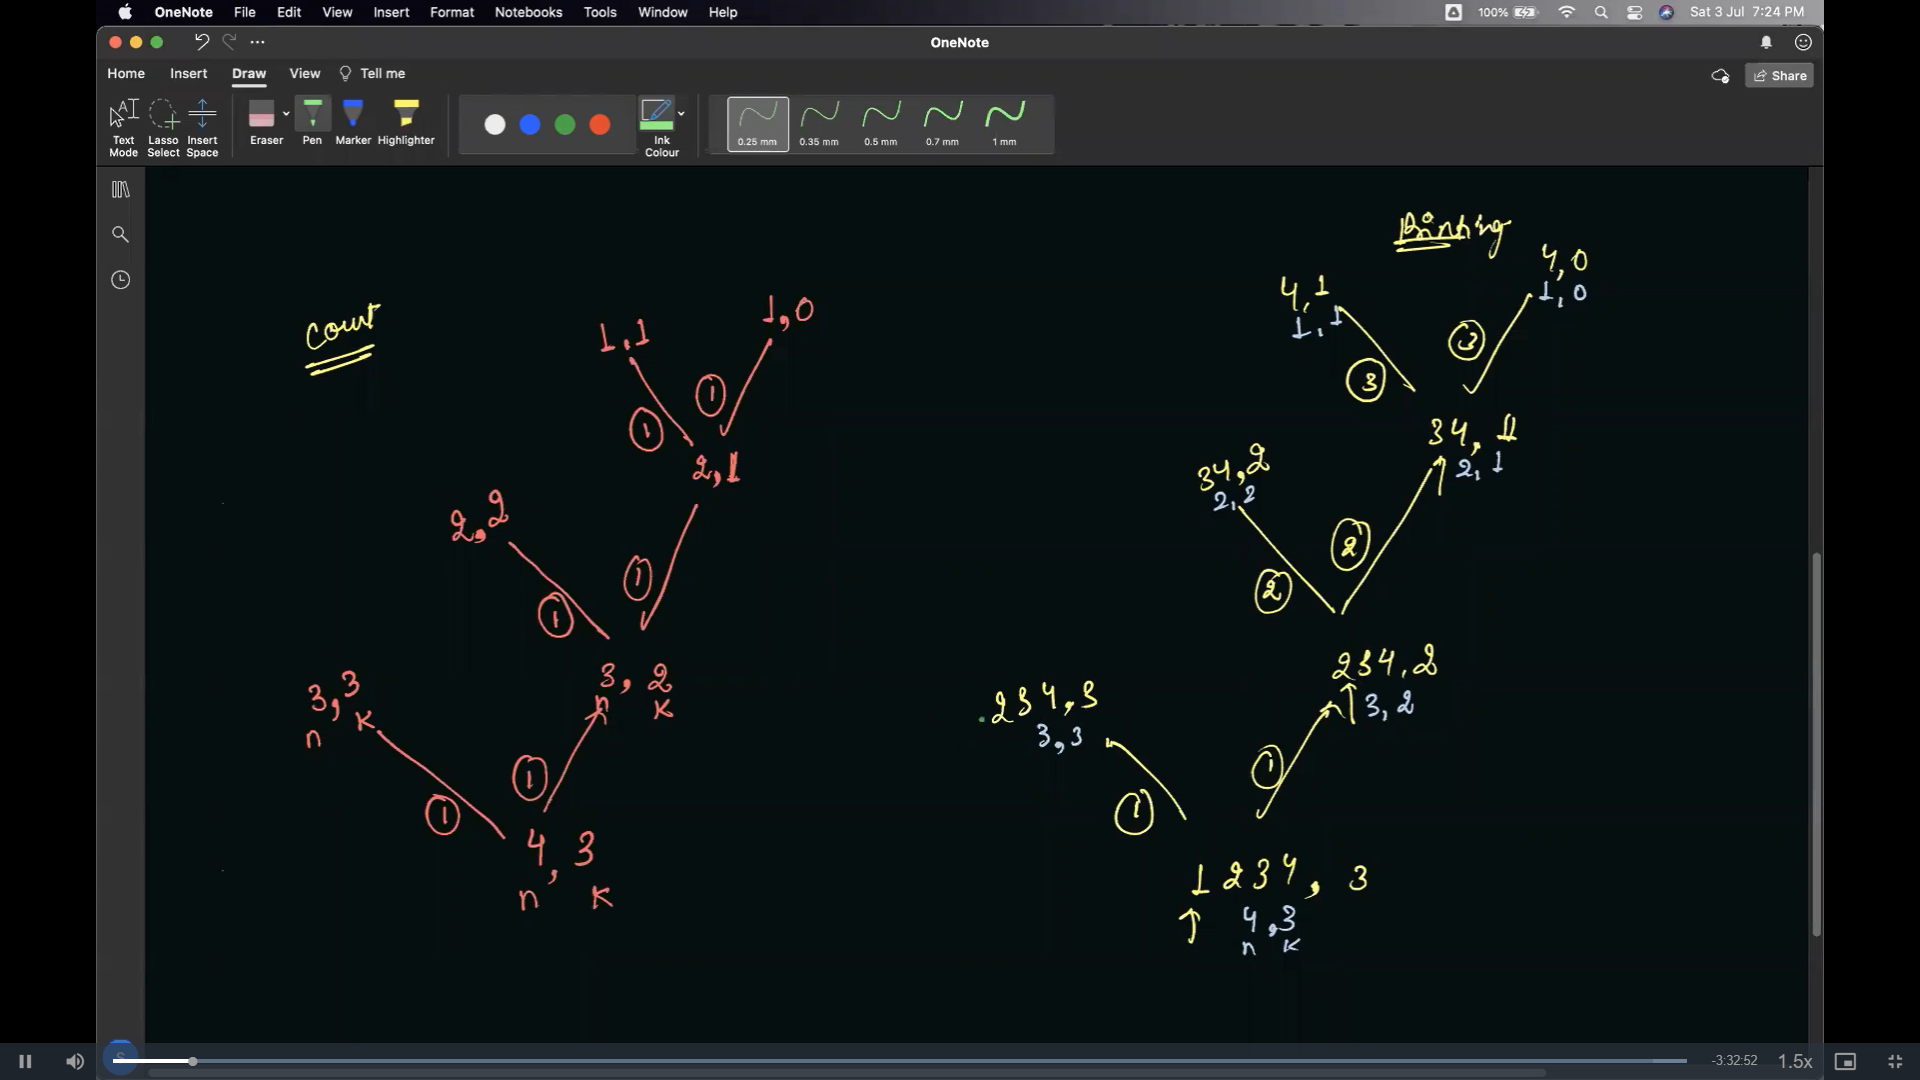 OneNote File Edit View Insert Format Notebooks Tools Window Help
100% Sat 3 Jul 7:24 PM
OneNote
Home Insert Draw View Tell me
Share
Text Mode
Lasso Select
Insert Space
Eraser
Pen
Marker
Highlighter
Ink Colour
0.25 mm
0.35 mm
0.5 mm
0.7 mm
1 mm
Count
1,1
1,0
1
1
2,1
2,2
1
1
3,3
n k
3, 2
n k
1
1
4, 3
n k
Printing
4,1
1,1
4,0
1,0
3
3
34,2
2,2
34, 1
2, 1
2
2
234,3
3,3
234,2
3, 2
1
1
1234, 3
4,3
n k
S
-3:32:52
1.5x